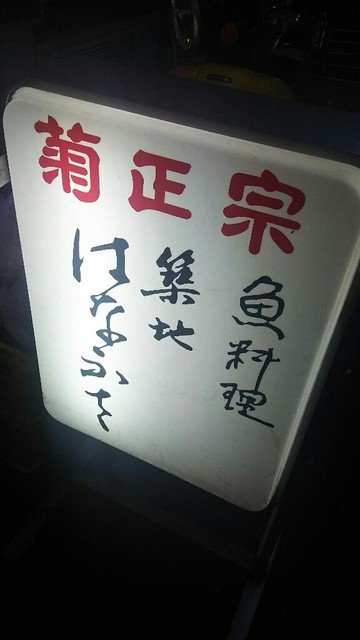 菊正宗
魚料理
築地
はなふさ